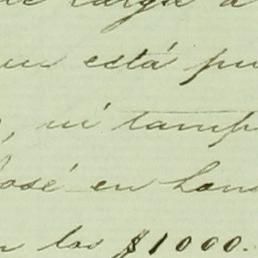 carga a
está pu
, ni tamp
José en Lon
los $1000.